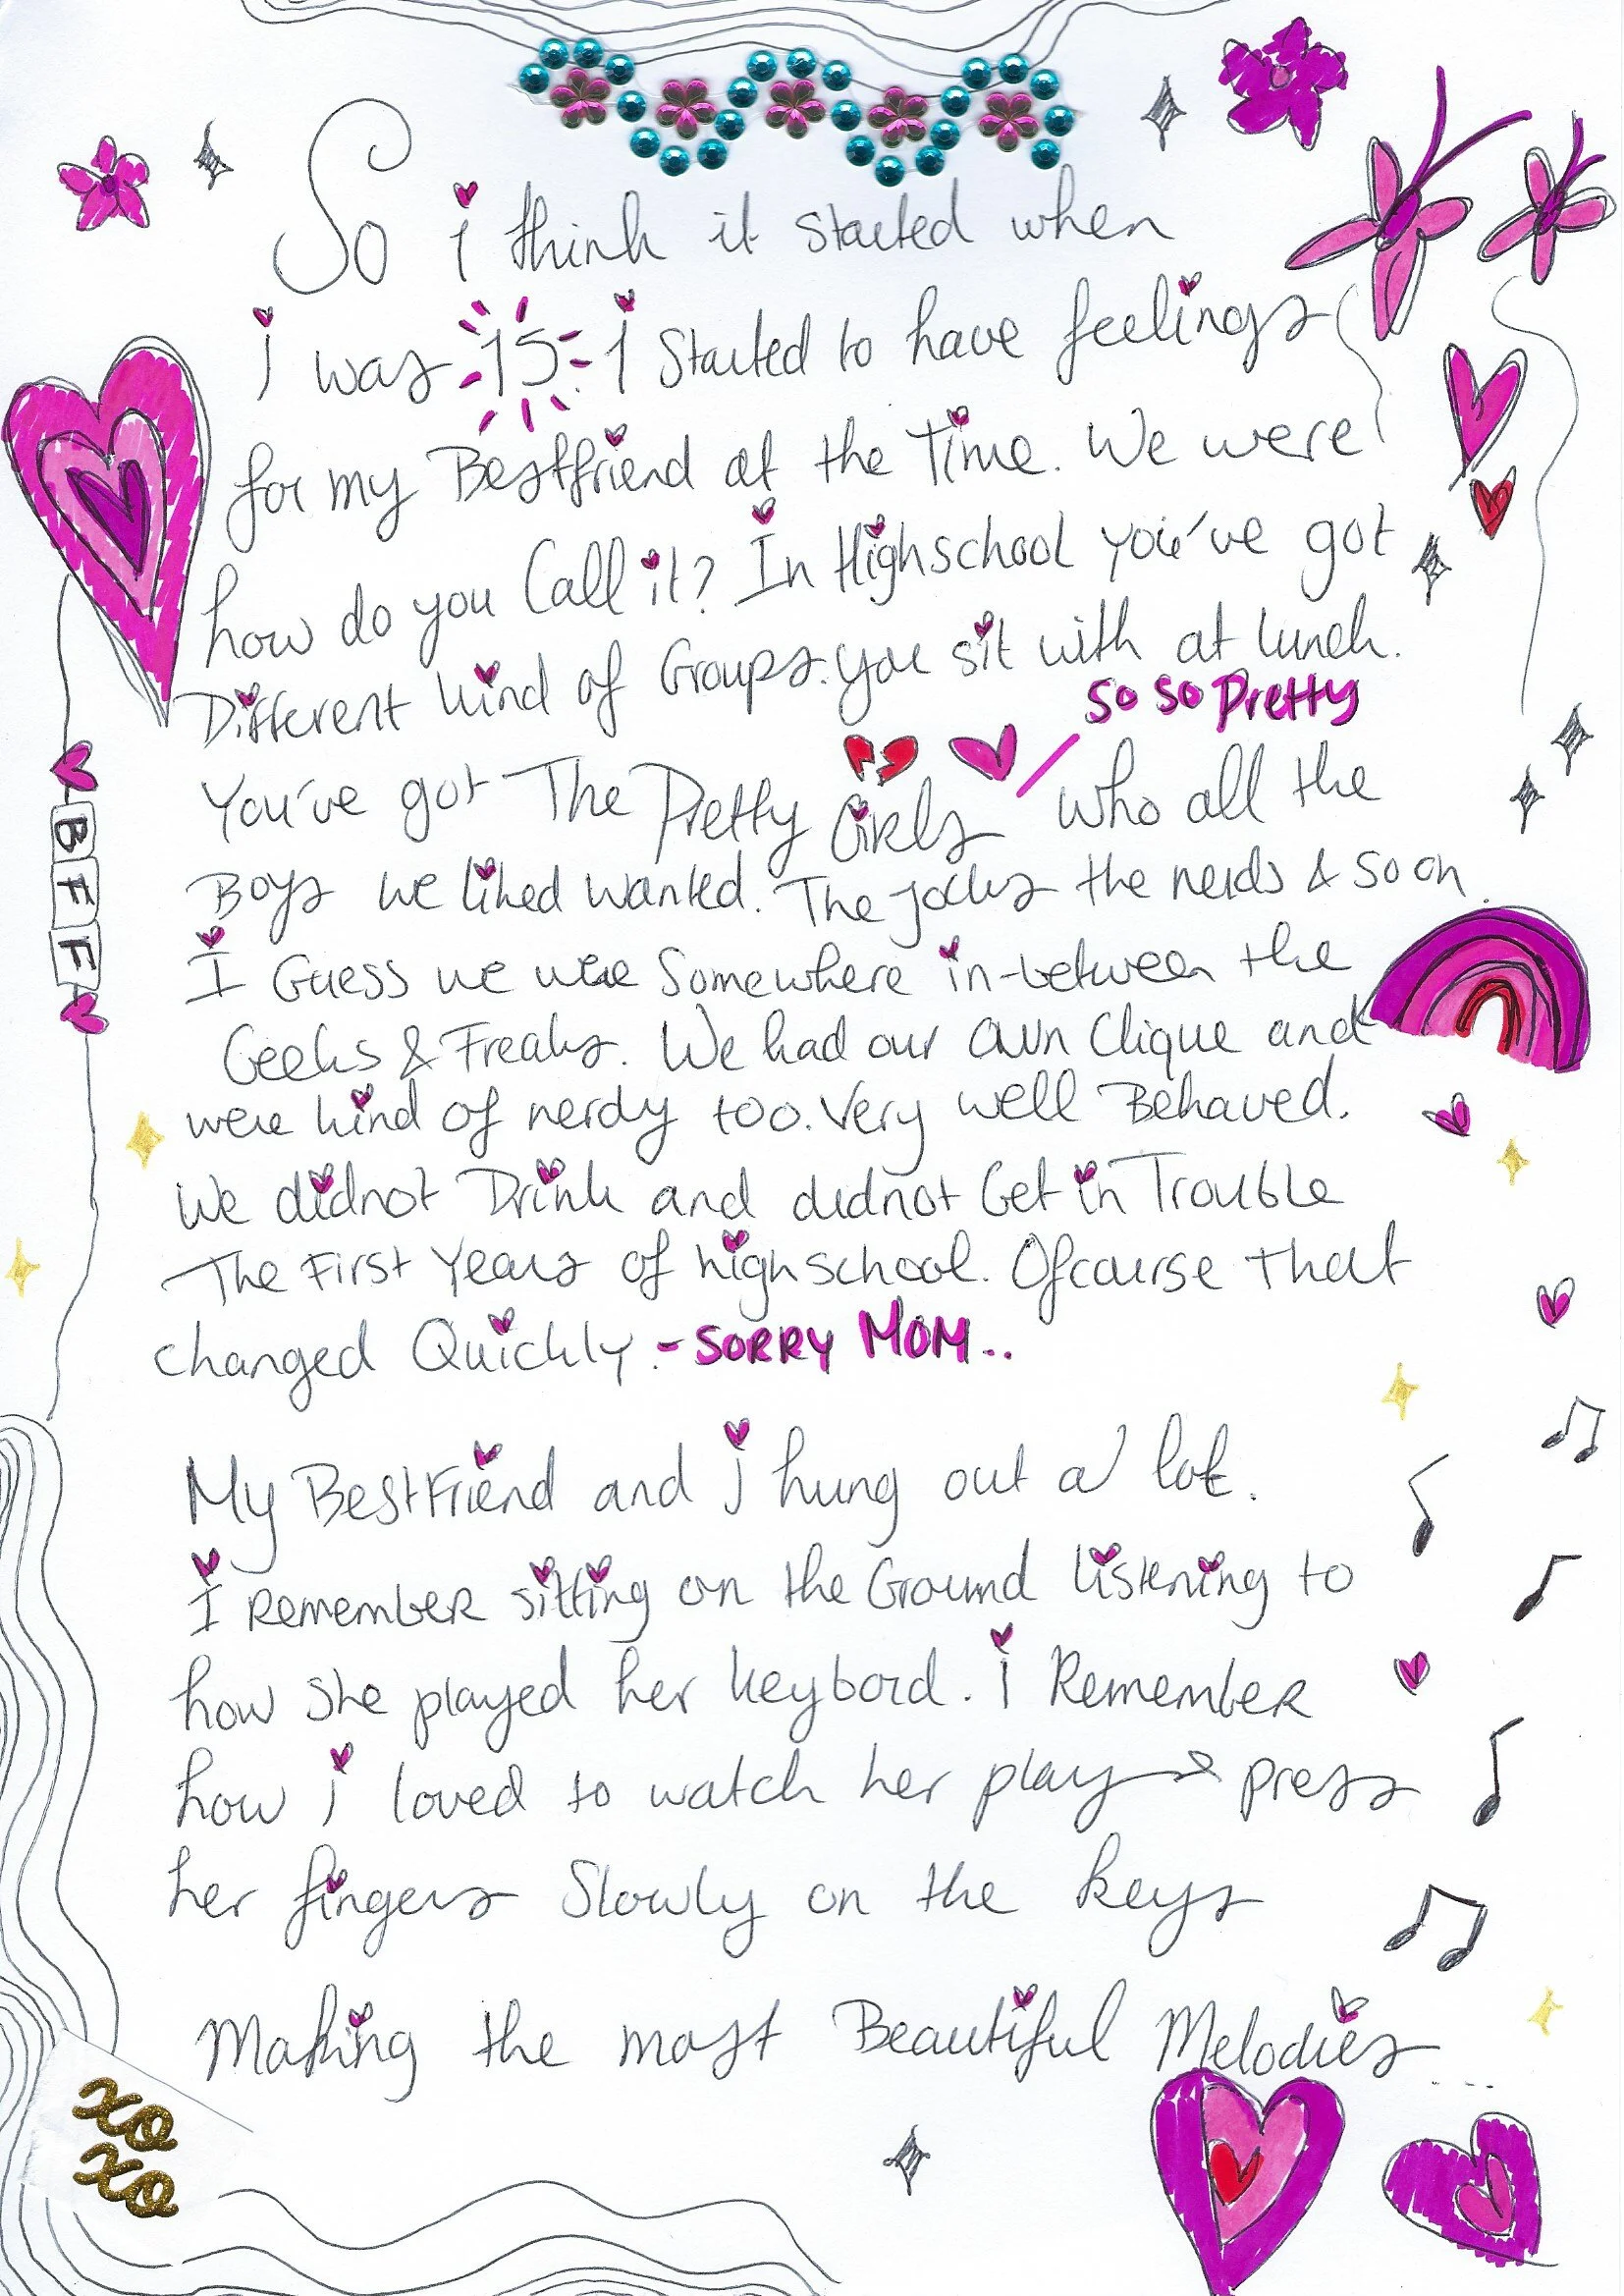 So i think it started when
i was 15. i Started to have feelings
for my Bestfriend at the Time. We were
how do you Call it? In Highschool you've got
Different kind of Groups. you sit with at lunch.
So So Pretty
You've got The Pretty Girls who all the
Boys we liked wanted. The Jocks the nerds & so on.
I Guess we were Somewhere in-between the
Geeks & Freaks. We had our own Clique and
were kind of nerdy too. Very well Behaved.
We didnot Drink and didnot Get in Trouble
The First Years of highschool. Ofcourse that
changed Quickly. - SORRY MOM..
My BestFriend and i hung out a lot.
I Remember sitting on the Ground listening to
how she played her keybord. i Remember
how i loved to watch her play & press
her fingers Slowly on the keys
Making the most Beautiful Melodies...
BFF
xo
xo